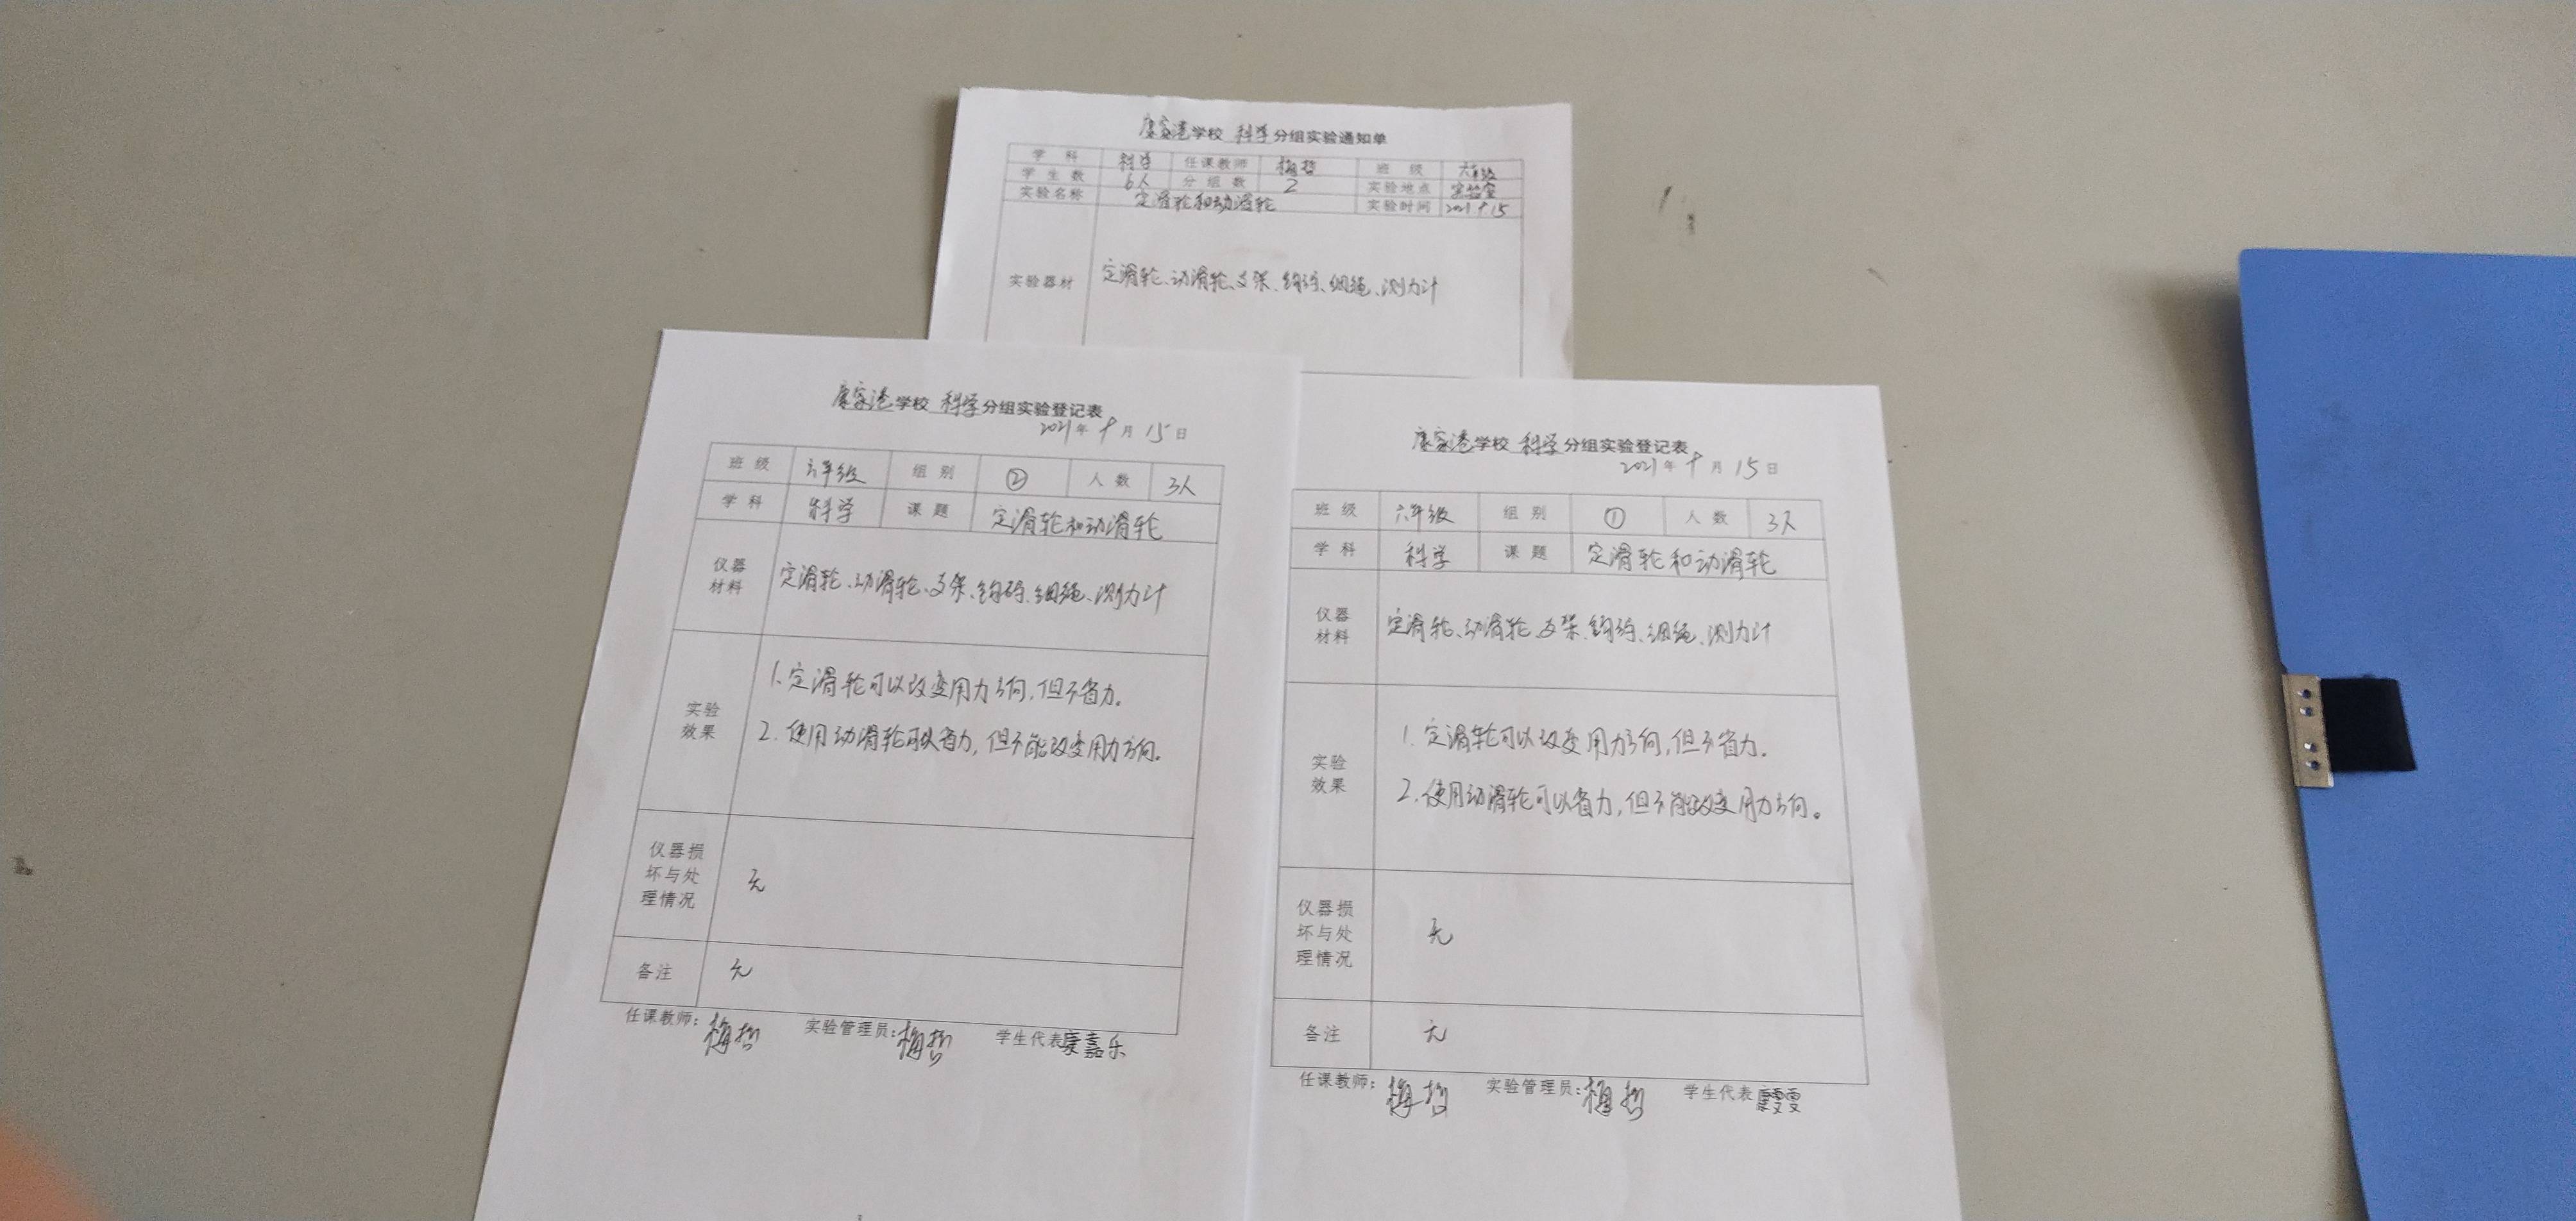 康家港学校 科学分组实验通知单
学科 科学 任课教师 梅哲 班级 六年级
学生数 6人 分组数 2 实验地点 实验室
实验名称 定滑轮和动滑轮 实验时间 2021 9 15
实验器材 定滑轮、动滑轮、支架、钩码、细绳、测力计
康家港学校 科学分组实验登记表
2021年9月15日
班级 六年级 组别 ② 人数 3人
学科 科学 课题 定滑轮和动滑轮
仪器
材料
定滑轮、动滑轮、支架、钩码、细绳、测力计
实验
效果
1.定滑轮可以改变用力方向,但不省力。
2.使用动滑轮可以省力,但不能改变用力方向。
仪器损
坏与处
理情况
无
备注 无
任课教师:梅哲 实验管理员:梅哲 学生代表康嘉乐
康家港学校 科学分组实验登记表
2021年9月15日
班级 六年级 组别 ① 人数 3人
学科 科学 课题 定滑轮和动滑轮
仪器
材料
定滑轮、动滑轮、支架、钩码、细绳、测力计
实验
效果
1.定滑轮可以改变用力方向,但不省力。
2.使用动滑轮可以省力,但不能改变用力方向。
仪器损
坏与处
理情况
无
备注 无
任课教师:梅哲 实验管理员:梅哲 学生代表 康雯雯